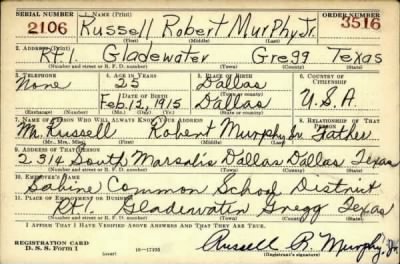 SERIAL NUMBER 1. NAME (Print) ORDER NUMBER
2106 Russell Robert Murphy Jr. 3516
(First) (Middle) (Last)
2. ADDRESS (Print)
Rt 1. Gladewater Gregg Texas
(Number and street or R. F. D. number) (Town) (County) (State)
3. TELEPHONE 4. AGE IN YEARS 5. PLACE OF BIRTH 6. COUNTRY OF CITIZENSHIP
None 25 Dallas
(Town or county)
DATE OF BIRTH
Feb. 12, 1915 Dallas U.S.A.
(Exchange) (Number) (Mo.) (Day) (Yr.) (State or country)
7. NAME OF PERSON WHO WILL ALWAYS KNOW YOUR ADDRESS 8. RELATIONSHIP OF THAT PERSON
Mr. Russell Robert Murphy Sr Father
(Mr., Mrs., Miss) (First) (Middle) (Last)
9. ADDRESS OF THAT PERSON
2314 South Marsalis Dallas Dallas Texas
(Number and street or R. F. D. number) (Town) (County) (State)
10. EMPLOYER'S NAME
Sabine Common School District
11. PLACE OF EMPLOYMENT OR BUSINESS
Rt 1. Gladewater Gregg Texas
(Number and street or R. F. D. number) (Town) (County) (State)
I AFFIRM THAT I HAVE VERIFIED ABOVE ANSWERS AND THAT THEY ARE TRUE.
REGISTRATION CARD
D. S. S. Form 1 (over) 16—17105 Russell R. Murphy, Jr.
(Registrant's signature)